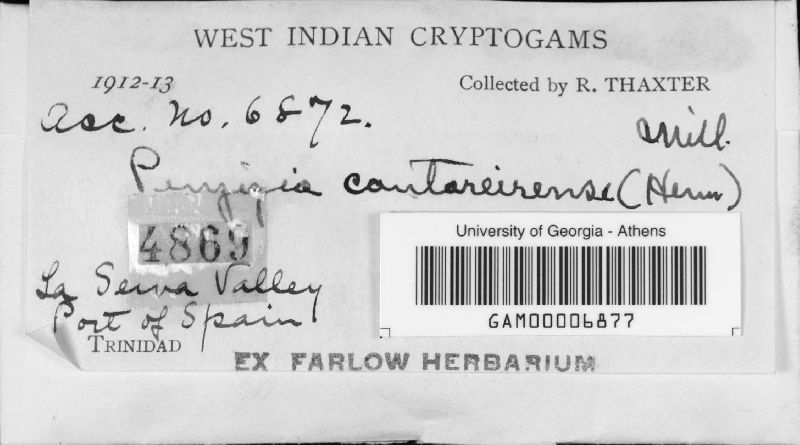 WEST INDIAN CRYPTOGAMS
1912-13 Collected by R. THAXTER
Acc. No. 6872.
Mill.
Penzigia cantareirense (Henn)
4869
University of Georgia - Athens
GAM00006877
La Seiva Valley
Port of Spain
TRINIDAD
EX FARLOW HERBARIUM